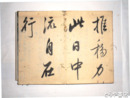 推移力
此日中
流自在
行